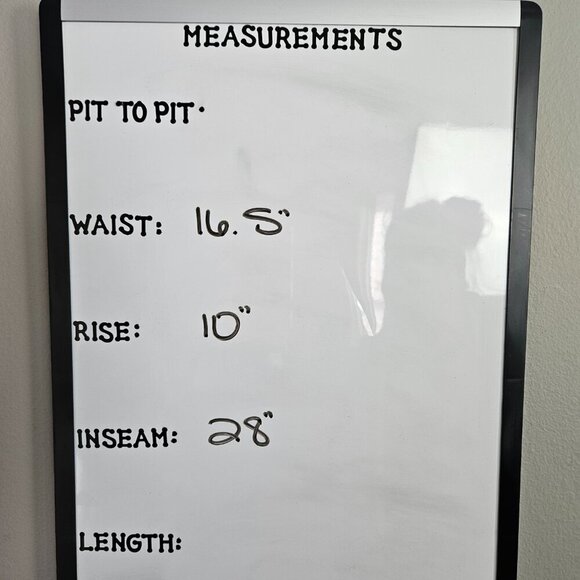 MEASUREMENTS
PIT TO PIT·
WAIST: 16.5"
RISE: 10"
INSEAM: 28"
LENGTH: